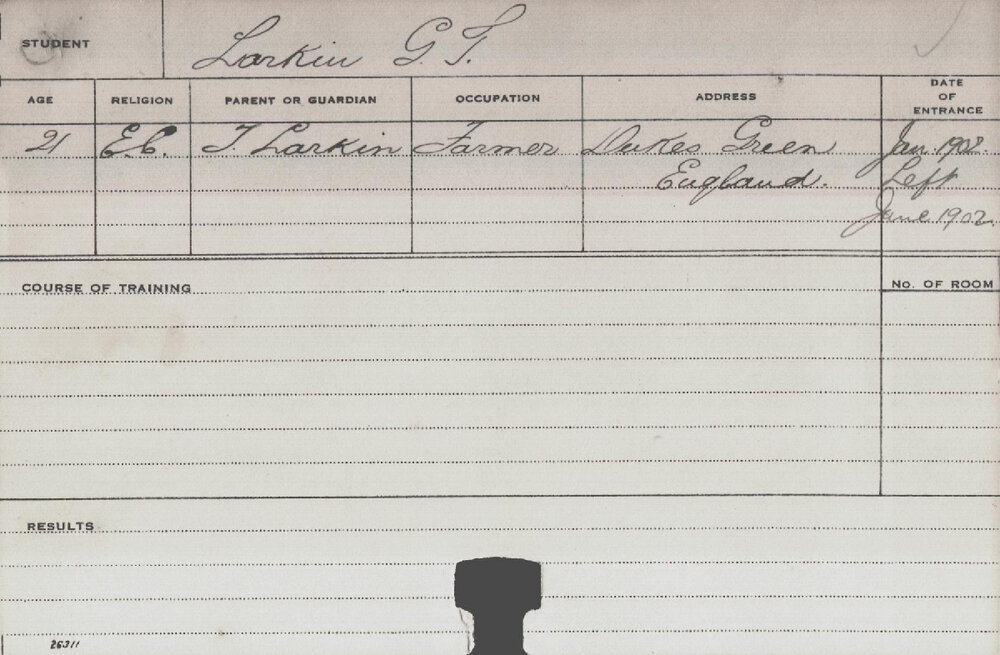 STUDENT Larkin G. T.
AGE RELIGION PARENT OR GUARDIAN OCCUPATION ADDRESS DATE OF ENTRANCE
21 E.C. T Larkin Farmer Dukes Green Jan 1902.
England. Left
June 1902.
COURSE OF TRAINING No. OF ROOM
RESULTS
26311